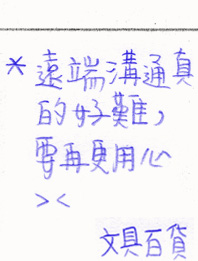 * 遠端溝通真
的好難，
要再更用心
> <
文具百貨